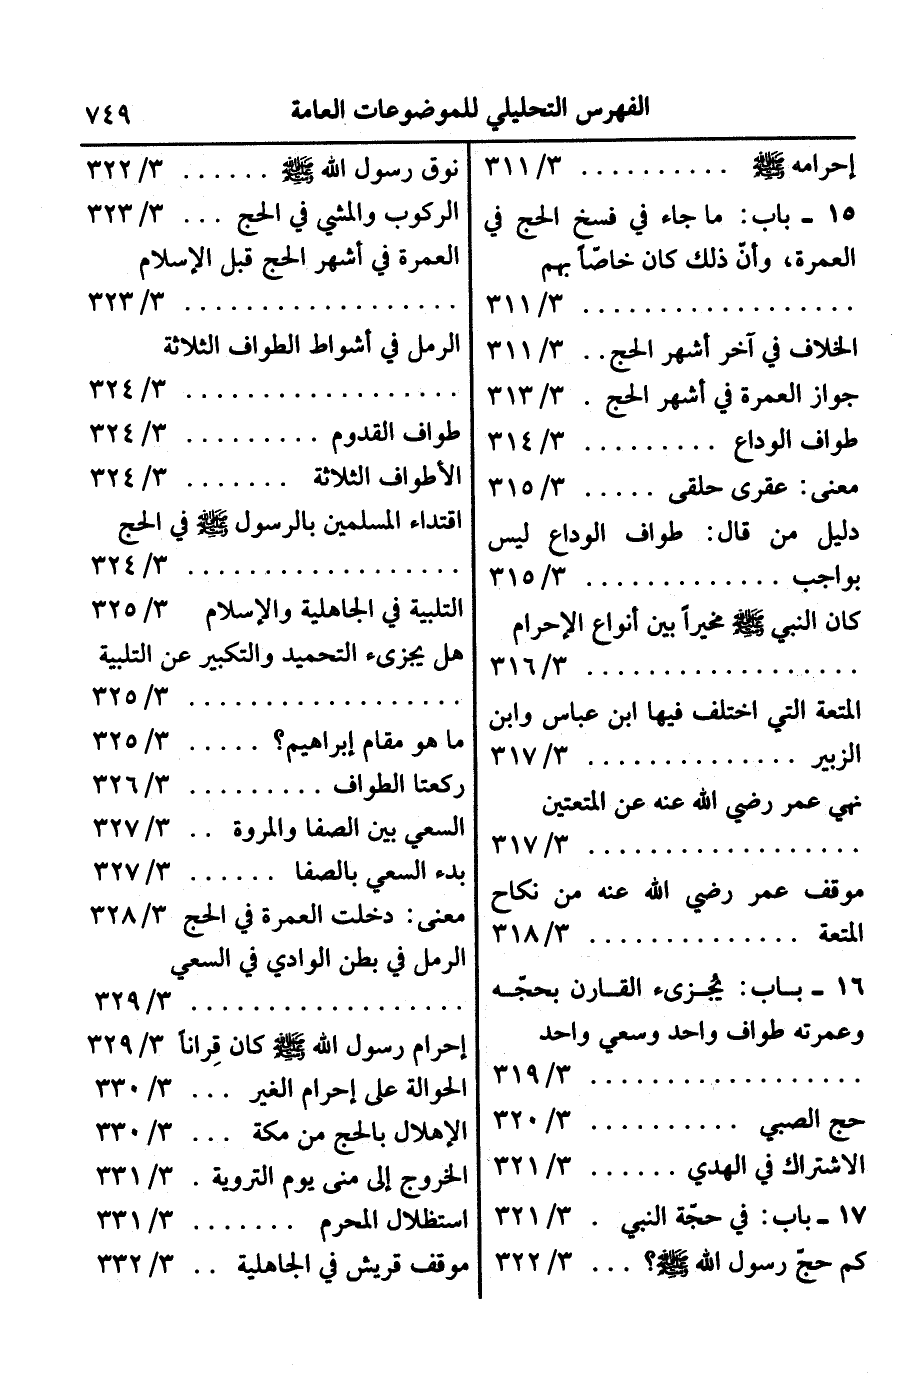 الفهرس التحليلي للموضوعات العامة ٧٤٩
إحرامه ﷺ .......... ٣١١/٣
١٥ ـ باب: ما جاء في فسخ الحج في
العمرة، وأنّ ذلك كان خاصّاً بهم
.................. ٣١١/٣
الخلاف في آخر أشهر الحج .. ٣١١/٣
جواز العمرة في أشهر الحج . ٣١٣/٣
طواف الوداع ......... ٣١٤/٣
معنى: عقرى حلقى ..... ٣١٥/٣
دليل من قال: طواف الوداع ليس
بواجب ............. ٣١٥/٣
كان النبي ﷺ مخيراً بين أنواع الإحرام
.................. ٣١٦/٣
المتعة التي اختلف فيها ابن عباس وابن
الزبير .............. ٣١٧/٣
نهي عمر رضي الله عنه عن المتعتين
.................. ٣١٧/٣
موقف عمر رضي الله عنه من نكاح
المتعة .............. ٣١٨/٣
١٦ ـ بـاب: يُجـزىء القـارن بحجّـه
وعمرته طواف واحد وسعي واحد
.................. ٣١٩/٣
حج الصبي .......... ٣٢٠/٣
الاشتراك في الهدي ...... ٣٢١/٣
١٧ ـ باب: في حجّة النبي . ٣٢١/٣
كم حجّ رسول الله ﷺ؟ ... ٣٢٢/٣
نوق رسول الله ﷺ ...... ٣٢٢/٣
الركوب والمشي في الحج ... ٣٢٣/٣
العمرة في أشهر الحج قبل الإسلام
.................. ٣٢٣/٣
الرمل في أشواط الطواف الثلاثة
.................. ٣٢٤/٣
طواف القدوم ......... ٣٢٤/٣
الأطواف الثلاثة ....... ٣٢٤/٣
اقتداء المسلمين بالرسول ﷺ في الحج
.................. ٣٢٤/٣
التلبية في الجاهلية والإسلام ٣٢٥/٣
هل يجزىء التحميد والتكبير عن التلبية
.................. ٣٢٥/٣
ما هو مقام إبراهيم؟ ..... ٣٢٥/٣
ركعتا الطواف ......... ٣٢٦/٣
السعي بين الصفا والمروة .. ٣٢٧/٣
بدء السعي بالصفا ...... ٣٢٧/٣
معنى: دخلت العمرة في الحج ٣٢٨/٣
الرمل في بطن الوادي في السعي
.................. ٣٢٩/٣
إحرام رسول الله ﷺ كان قِراناً ٣٢٩/٣
الحوالة على إحرام الغير ... ٣٣٠/٣
الإهلال بالحج من مكة ... ٣٣٠/٣
الخروج إلى منى يوم التروية . ٣٣١/٣
استظلال المحرم ....... ٣٣١/٣
موقف قريش في الجاهلية .. ٣٣٢/٣